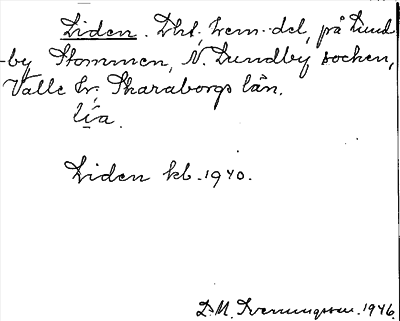 Liden. Dhs. hem.del, på Lund-
by Stommen, N. Lundby socken,
Valle hd; Skaraborgs län.
lia.
Liden kb. 1940.
D.M. Svenningsson. 1946.